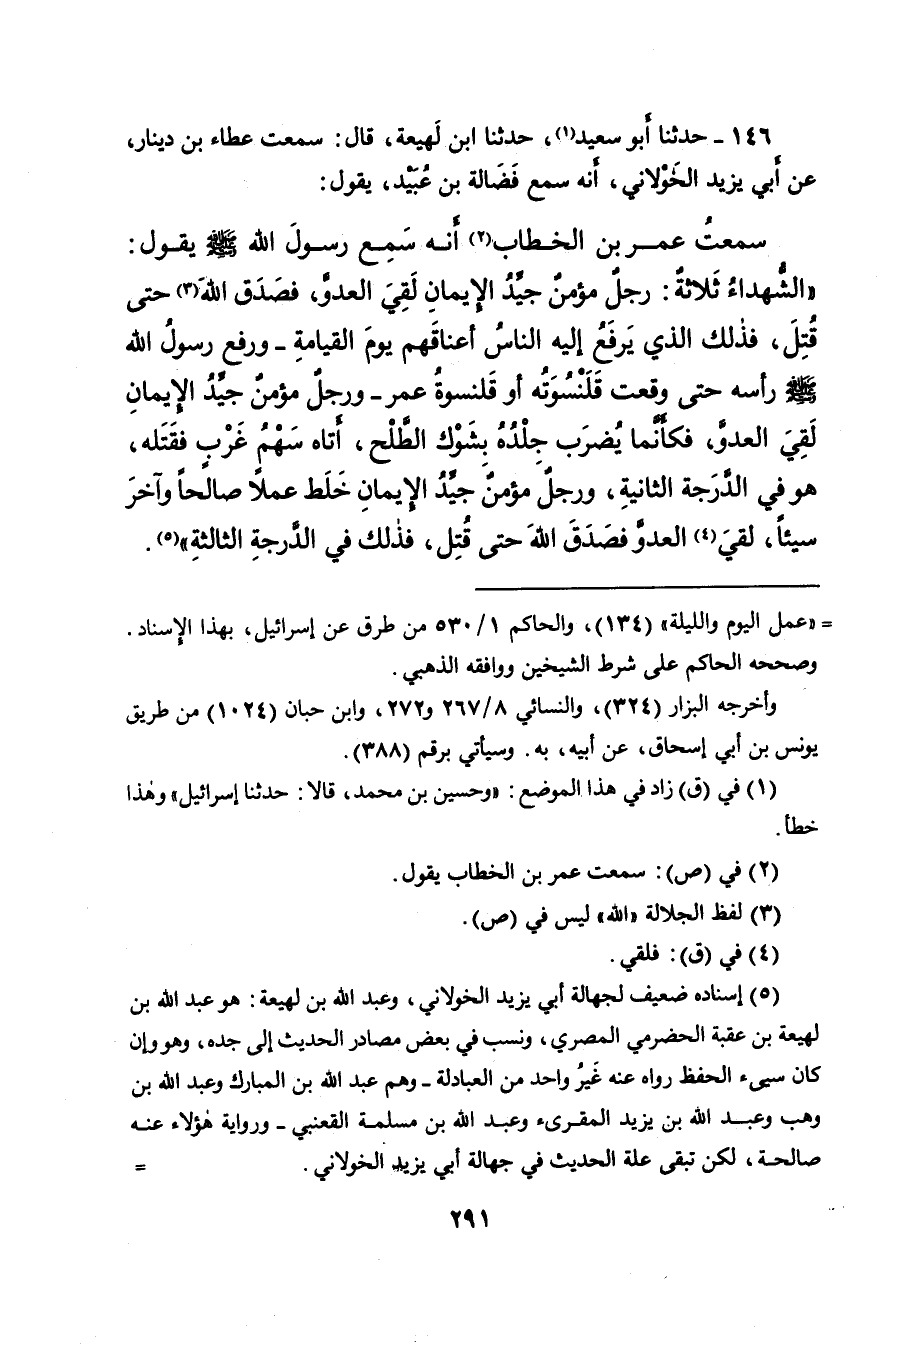 ١٤٦ ـ حدثنا أَبو سعيد(١)، حدثنا ابن لَهيعة، قال: سمعت عطاء بن دينار،
عن أَبي يزيد الخَوْلاني، أَنه سمع فَضَالة بن عُبَيْد، يقول:
سمعتُ عمر بن الخطاب(٢) أَنه سَمِع رسولَ الله ﷺ يقول:
«الشُّهداءُ ثَلاثةٌ: رجلٌ مؤمنٌ جيِّدُ الإِيمانِ لَقِيَ العدوَّ، فصَدَق اللهَ(٣) حتى
قُتِلَ، فذٰلك الذي يَرفَعُ إليه الناسُ أعناقَهم يومَ القيامةِ ـ ورفع رسولُ الله
ﷺ رأسه حتى وقعت قَلَنْسُوَتُه أو قَلنسوةُ عمر ـ ورجلٌ مؤمنٌ جيِّدُ الإِيمانِ
لَقِيَ العدوَّ، فكأَنَّما يُضرَب جِلْدُهُ بِشَوْك الطَّلْحِ، أَتاه سَهْمُ غَرْبٍ فقَتَله،
هو في الدَّرَجة الثانيةِ، ورجلٌ مؤمنٌ جيِّدُ الإِيمانِ خَلَط عملاً صالحاً وآخرَ
سيئاً، لقيَ(٤) العدوَّ فصَدَقَ اللهَ حتى قُتِل، فذٰلك في الدَّرجةِ الثالثةِ»(٥).
= «عمل اليوم والليلة» (١٣٤)، والحاكم ٥٣٠/١ من طرق عن إسرائيل، بهذا الإِسناد.
وصححه الحاكم على شرط الشيخين ووافقه الذهبي.
وأخرجه البزار (٣٢٤)، والنسائي ٢٦٧/٨ و٢٧٢، وابن حبان (١٠٢٤) من طريق
يونس بن أبي إسحاق، عن أبيه، به. وسيأتي برقم (٣٨٨).
(١) في (ق) زاد في هذا الموضع: «وحسين بن محمد، قالا: حدثنا إسرائيل» وهٰذا
خطأ.
(٢) في (ص): سمعت عمر بن الخطاب يقول.
(٣) لفظ الجلالة «الله» ليس في (ص).
(٤) في (ق): فلقي.
(٥) إسناده ضعيف لجهالة أبي يزيد الخولاني، وعبد الله بن لهيعة: هو عبد الله بن
لهيعة بن عقبة الحضرمي المصري، ونسب في بعض مصادر الحديث إلى جده، وهو وإن
كان سيىء الحفظ رواه عنه غيرُ واحد من العبادلة ـ وهم عبد الله بن المبارك وعبد الله بن
وهب وعبد الله بن يزيد المقرىء وعبد الله بن مسلمة القعنبي ـ ورواية هٰؤلاء عنه
صالحة، لكن تبقى علة الحديث في جهالة أبي يزيد الخولاني. =
٢٩١